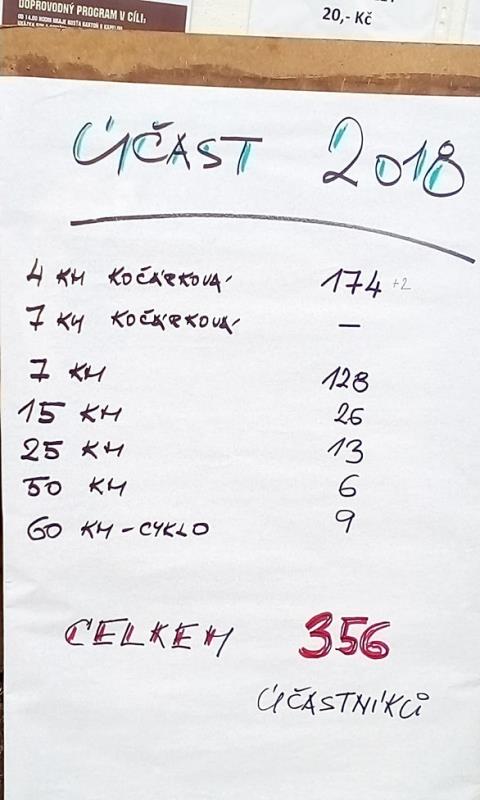 DOPROVODNÝ PROGRAM V CÍLI:
20,- Kč
ÚČAST 2018
4 KM KOČÁRKOVÁ 174 +2
7 KM KOČÁRKOVÁ —
7 KM 128
15 KM 26
25 KM 13
50 KM 6
60 KM - CYKLO 9
CELKEM 356
ÚČASTNÍKŮ